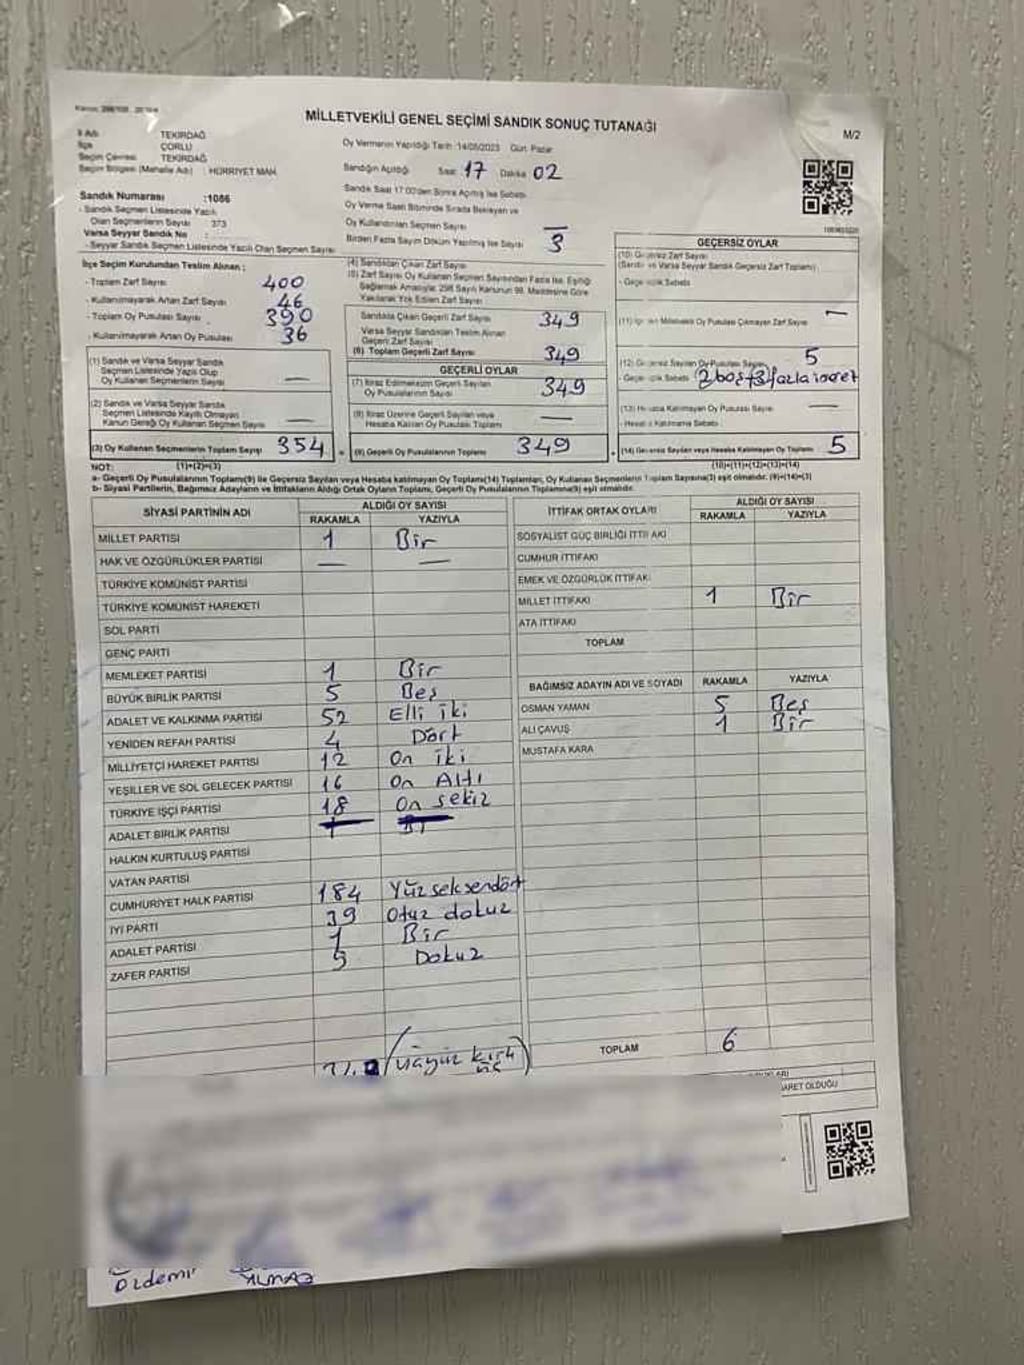 MİLLETVEKİLİ GENEL SEÇİMİ SANDIK SONUÇ TUTANAĞI
M/2
İl Adı TEKİRDAĞ
İlçe ÇORLU
Seçim Çevresi TEKİRDAĞ
Seçim Bölgesi (Mahalle Adı) : HÜRRİYET MAH.
Oy Vermenin Yapıldığı Tarih :14/05/2023 Gün: Pazar
Sandığın Açıldığı Saat: 17 Dakika: 02
Sandık Saat 17:00'den Sonra Açılmış İse Sebebi
Oy Verme Saati Bitiminde Sırada Bekleyen ve
Oy Kullandırılan Seçmen Sayısı —
Birden Fazla Sayım Döküm Yapılmış İse Sayısı 3
Sandık Numarası :1086
- Sandık Seçmen Listesinde Yazılı
Olan Seçmenlerin Sayısı : 373
Varsa Seyyar Sandık No :
- Seyyar Sandık Seçmen Listesinde Yazılı Olan Seçmen Sayısı
İlçe Seçim Kurulundan Teslim Alınan :
- Toplam Zarf Sayısı 400
- Kullanılmayarak Artan Zarf Sayısı 46
- Toplam Oy Pusulası Sayısı 390
- Kullanılmayarak Artan Oy Pusulası 36
(1) Sandık ve Varsa Seyyar Sandık
Seçmen Listesinde Yazılı Olup
Oy Kullanan Seçmenlerin Sayısı —
(2) Sandık ve Varsa Seyyar Sandık
Seçmen Listesinde Kayıtlı Olmayan
Kanun Gereği Oy Kullanan Seçmen Sayısı —
(3) Oy Kullanan Seçmenlerin Toplam Sayısı 354
(1)+(2)=(3)
(4) Sandıktan Çıkan Zarf Sayısı
(5) Zarf Sayısı Oy Kullanan Seçmen Sayısından Fazla İse, Eşitliği
Sağlamak Amacıyla; 298 Sayılı Kanunun 98. Maddesine Göre
Yakılarak Yok Edilen Zarf Sayısı
Sandıkta Çıkan Geçerli Zarf Sayısı 349
Varsa Seyyar Sandıktan Teslim Alınan
Geçerli Zarf Sayısı
(6) Toplam Geçerli Zarf Sayısı 349
GEÇERLİ OYLAR
(7) İtiraz Edilmeksizin Geçerli Sayılan
Oy Pusulalarının Sayısı 349
(8) İtiraz Üzerine Geçerli Sayılan veya
Hesaba Katılan Oy Pusulası Toplamı —
(9) Geçerli Oy Pusulalarının Toplamı 349
GEÇERSİZ OYLAR
(10) Geçersiz Zarf Sayısı
(Sandık ve Varsa Seyyar Sandık Geçersiz Zarf Toplamı)
- Geçersizlik Sebebi
(11) İçinden Milletvekili Oy Pusulası Çıkmayan Zarf Sayısı —
(12) Geçersiz Sayılan Oy Pusulası Sayısı 5
- Geçersizlik Sebebi 2 boş + 3 fazla
(13) Hesaba Katılmayan Oy Pusulası Sayısı —
- Hesaba Katılmama Sebebi
(14) Geçersiz Sayılan veya Hesaba Katılmayan Oy Toplamı 5
(10)+(11)+(12)+(13)=(14)
NOT:
a- Geçerli Oy Pusulalarının Toplamı(9) ile Geçersiz Sayılan veya Hesaba katılmayan Oy Toplamı(14) Toplamları, Oy Kullanan Seçmenlerin Toplam Sayısına(3) eşit olmalıdır. (9)+(14)=(3)
b- Siyasi Partilerin, Bağımsız Adayların ve İttifakların Aldığı Ortak Oyların Toplamı, Geçerli Oy Pusulalarının Toplamına(9) eşit olmalıdır.
SİYASİ PARTİNİN ADI ALDIĞI OY SAYISI
RAKAMLA YAZIYLA
MİLLET PARTİSİ 1 Bir
HAK VE ÖZGÜRLÜKLER PARTİSİ — —
TÜRKİYE KOMÜNİST PARTİSİ
TÜRKİYE KOMÜNİST HAREKETİ
SOL PARTİ
GENÇ PARTİ
MEMLEKET PARTİSİ 1 Bir
BÜYÜK BİRLİK PARTİSİ 5 Beş
ADALET VE KALKINMA PARTİSİ 52 Elli iki
YENİDEN REFAH PARTİSİ 4 Dört
MİLLİYETÇİ HAREKET PARTİSİ 12 On iki
YEŞİLLER VE SOL GELECEK PARTİSİ 16 On Altı
TÜRKİYE İŞÇİ PARTİSİ 18 On sekiz
ADALET BİRLİK PARTİSİ
HALKIN KURTULUŞ PARTİSİ
VATAN PARTİSİ
CUMHURİYET HALK PARTİSİ 184 Yüz seksendört
İYİ PARTİ 39 Otuz dokuz
ADALET PARTİSİ 1 Bir
ZAFER PARTİSİ 9 Dokuz
İTTİFAK ORTAK OYLARI ALDIĞI OY SAYISI
RAKAMLA YAZIYLA
SOSYALİST GÜÇ BİRLİĞİ İTTİFAKI
CUMHUR İTTİFAKI
EMEK VE ÖZGÜRLÜK İTTİFAKI
MİLLET İTTİFAKI 1 Bir
ATA İTTİFAKI
TOPLAM
BAĞIMSIZ ADAYIN ADI VE SOYADI RAKAMLA YAZIYLA
OSMAN YAMAN 5 Beş
ALİ ÇAVUŞ 1 Bir
MUSTAFA KARA
TOPLAM 6
ARET OLDUĞU
Özdemir
YILMAZ